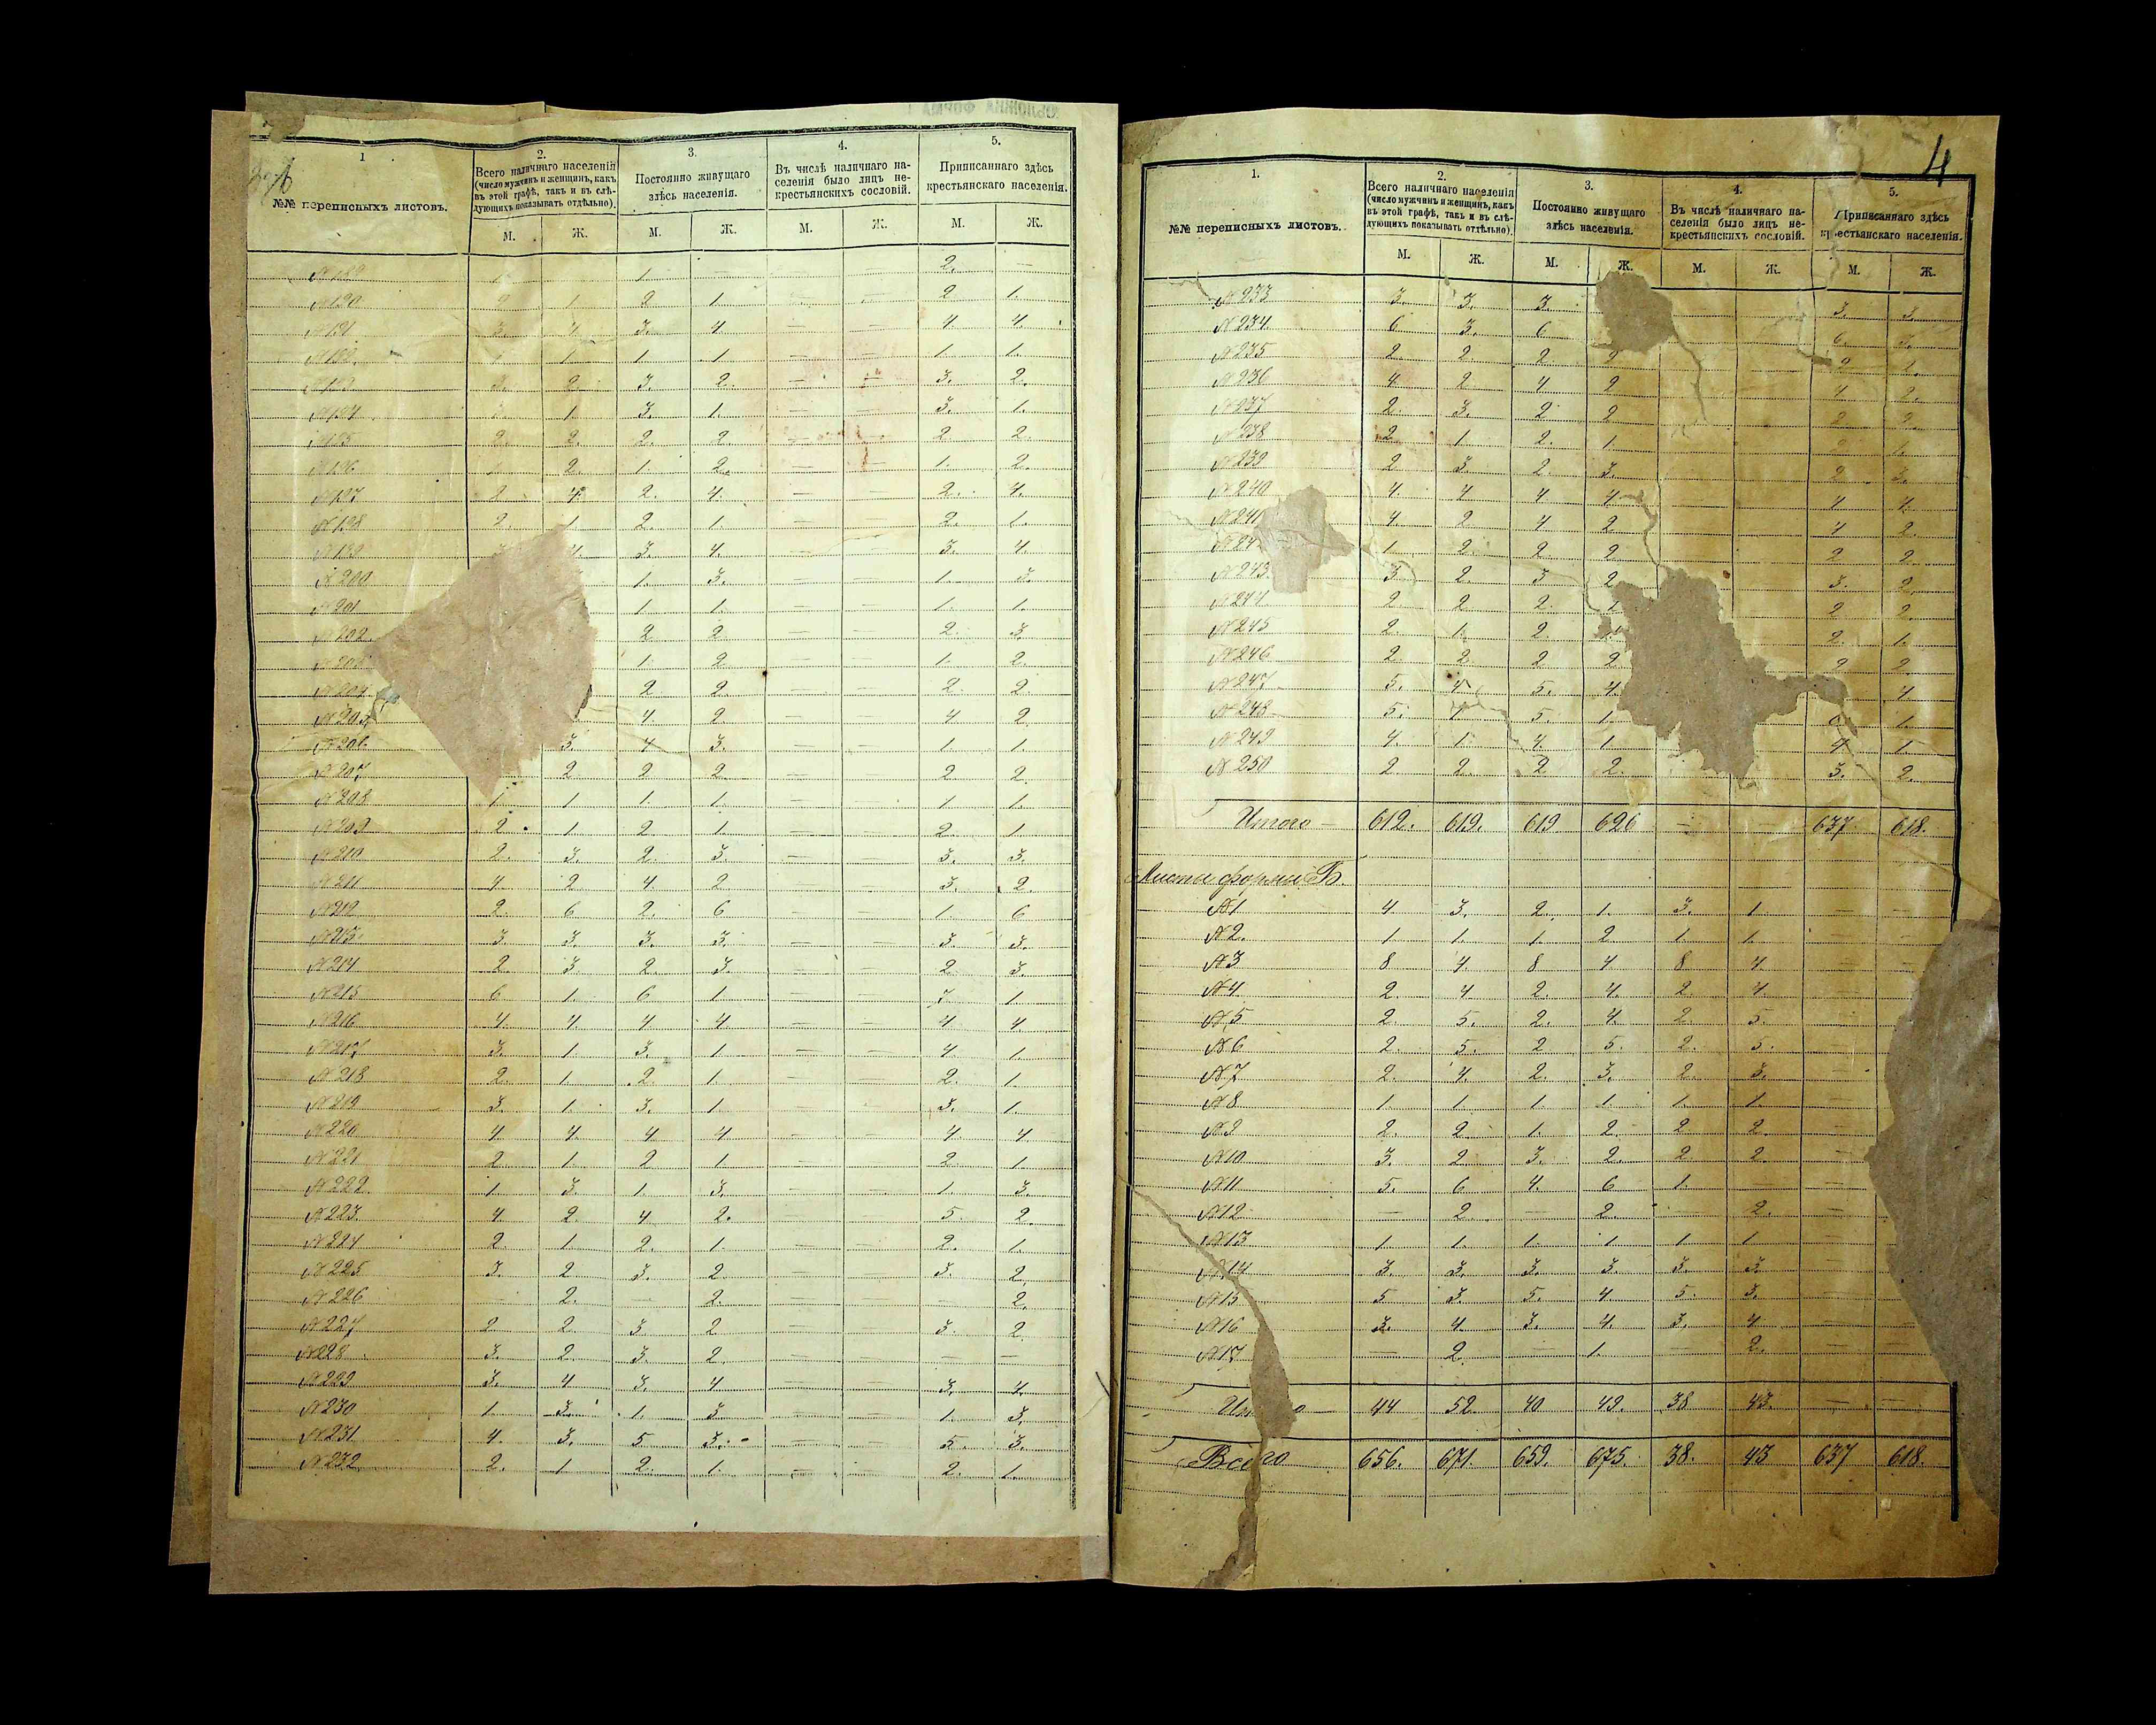 1
2.
3.
4.
5.
№№ переписныхъ листовъ.
Всего наличнаго населенія
(число мужчинъ и женщинъ, какъ
въ этой графѣ, такъ и въ слѣ-
дующихъ показывать отдѣльно).
Постоянно живущаго
здѣсь населенія.
Въ числѣ наличнаго на-
селенія было лицъ не-
крестьянскихъ сословій.
Приписаннаго здѣсь
крестьянскаго населенія.
М. Ж. М. Ж. М. Ж. М. Ж.
№ 189 1. 1. — — — 2. —
№ 190 2 1. 2 1. — — 2 1.
№ 191 3. 4. 3. 4 — — 4. 4.
1. 1. 1. 1. — — 1. 1.
3. 2. 3. 2. — — 3. 2.
№ 194 1. 3. 1. — — 3. 1.
№ 195 2. 2. 2. 2. — — 2. 2.
№ 196 2. 1. 2. — — 1. 2.
№ 197 2. 4. 2. 4. — — 2. 4.
№ 198 2. 1. 2. 1. — — 2. 1.
№ 199 4. 3. 4. — — 3. 4.
№ 200 1. 3. — — 1. 3.
№ 201 1. 1. — — 1. 1.
№ 202. 2 2. — — 2. 3.
1. 2. — — 1. 2.
№ 204 2 2. — — 2. 2.
№ 205. 4. 2 — — 4 2.
3. 4 3. — — 1. 1.
№ 207 2. 2 2. — — 2. 2.
№ 208 1. 1 1. 1. — — 1 1.
№ 209 2. 1. 2 1. — — 2. 1.
№ 210 2. 3. 2. 3. — — 3. 3.
№ 211 4. 2 4. 2 — — 3. 2.
№ 212 2. 6 2. 6 — — 1. 6
№ 213. 3. 3. 3. 3. — — 3. 3.
№ 214 2. 3 2. 3. — — 2. 3.
№ 215 6 1. 6 1. — — 7 1
№ 216 4. 4. 4 4. — — 4 4
№ 217 3. 1. 3. 1 — — 4. 1
№ 218 2. 1. 2. 1. — — 2. 1
№ 219 3. 1. 3. 1. — — 3. 1.
№ 220 4. 4. 4 4 — — 4. 4
№ 221 2. 1. 2 1. — — 2. 1.
№ 222. 1. 3. 1. 3. — — 1. 3.
№ 223. 4. 2. 4 2. — — 5. 2.
№ 224 2. 1. 2. 1. — — 2. 1.
№ 225 3. 2 3. 2. — — 3. 2.
№ 226 — 2. — 2. — — — 2.
№ 227 2 2. 3. 2 — — 3. 2
№ 228 3. 2. 3. 2. — — — —
№ 229 3. 4 3. 4 — — 3. 4.
№ 230 1. 3. 1. 3. — — 1. 3.
№ 231 4. 3. 5 3. — — 5. 3.
№ 232 2. 1 2. 1. — — 2. 1.
4
1.
2.
3.
4.
5.
№№ переписныхъ листовъ.
Всего наличнаго населенія
(число мужчинъ и женщинъ, какъ
въ этой графѣ, такъ и въ слѣ-
дующихъ показывать отдѣльно).
Постоянно живущаго
здѣсь населенія.
Въ числѣ наличнаго на-
селенія было лицъ не-
крестьянскихъ сословій.
Приписаннаго здѣсь
крестьянскаго населенія.
М. Ж. М. Ж. М. Ж. М. Ж.
№ 233 3. 3. 3. 3. 3.
№ 234 6 3. 6 6. 3.
№ 235 2. 2. 2. 2 2 2.
№ 236 4. 2 4 2 4 2.
№ 237 2. 3. 2 2 2 2.
№ 238 2. 1 2. 1. 1.
№ 239 2. 3. 2. 3. 2 3.
№ 240 4. 4 4 4 4 4.
№ 241 4. 2 4 2 4 2.
1. 2. 2 2. 2 2.
№ 243. 3 2. 3 2 3. 2
№ 244 2. 2 2. 1. 2 2.
№ 245 2. 1. 2. 2. 1.
№ 246 2 2 2 2 2 2
№ 247 5. 4 5. 4. 4
№ 248 5. 5 1. 1.
№ 249 4. 1. 4. 1. 4 1.
№ 250 2. 2. 2 2. 3. 2.
Итого — 612. 619. 619 626 — — 637 618.
Листы формы Б.
№ 1 4. 3. 2. 1. 3. 1. — —
№ 2. 1. 1. 1. 2 1. 1. — —
№ 3 8 4. 8 4 8 4. — —
№ 4 2. 4 2. 4. 2. 4. —
№ 5 2. 5. 2. 4. 2. 5. —
№ 6 2. 5. 2 5. 2. 5. —
№ 7 2. 4. 2. 3. 2. 3. —
№ 8 1. 1. 1. 1. 1. 1. —
№ 9 2. 2. 1. 2. 2 2. —
№ 10 3. 2 3. 2. 2. 2. —
№ 11 5. 6 4. 6 1. — —
№ 12 — 2. — 2. — 2. —
№ 13 1. 1. 1. 1 1 1 —
№ 14 3. 3. 3. 3. 3. 3. —
№ 15 5 3. 5. 4 5. 3. —
№ 16 3. 4. 3. 4. 3. 4 —
№ 17 — 2. — 1. — 2. —
44 52. 40 49. 38 43. — —
Всего 656. 671. 659. 675. 38. 43 637 618.